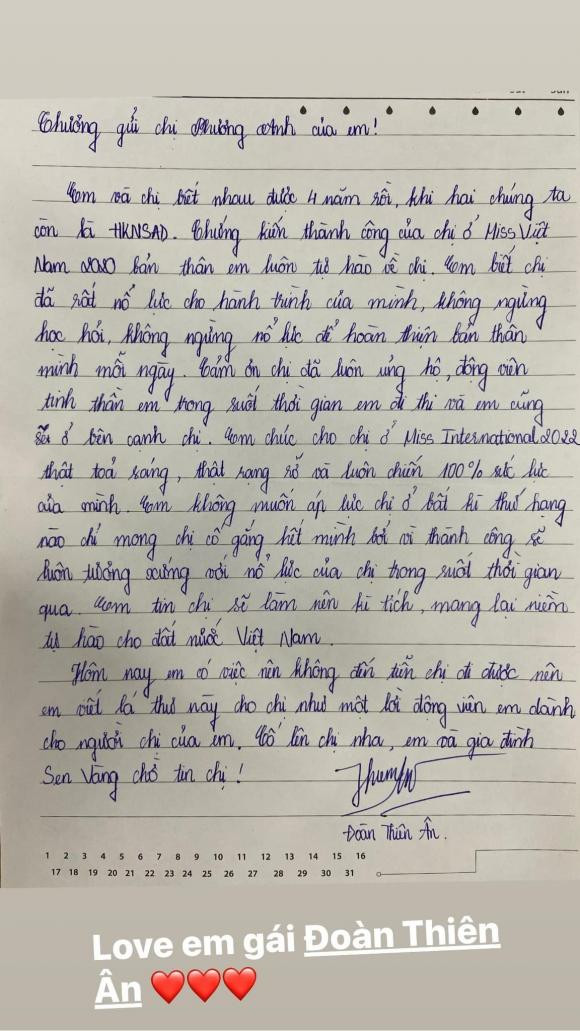 Thương gửi chị Phương Anh của em!
Em và chị biết nhau được 4 năm rồi, khi hai chúng ta
còn là HKNSAD. Chứng kiến thành công của chị ở Miss Việt
Nam 2020 bản thân em luôn tự hào về chị. Em biết chị
đã rất nổ lực cho hành trình của mình, không ngừng
học hỏi, không ngừng nổ lực để hoàn thiện bản thân
mình mỗi ngày. Cảm ơn chị đã luôn ủng hộ, động viên
tinh thần em trong suốt thời gian em đi thi và em cũng
sẽ ở bên cạnh chị. Em chúc cho chị ở Miss International 2022
thật toả sáng, thật rạng rỡ và luôn chiến 100% sức lực
của mình. Em không muốn áp lực chị ở bất kì thứ hạng
nào chỉ mong chị cố gắng hết mình bởi vì thành công sẽ
luôn tương xứng với nổ lực của chị trong suốt thời gian
qua. Em tin chị sẽ làm nên kì tích, mang lại niềm
tự hào cho đất nước Việt Nam.
Hôm nay em có việc nên không đến tiễn chị đi được nên
em viết lá thư này cho chị như một lời động viên em dành
cho người chị của em. Cố lên chị nha, em và gia đình
Sen Vàng chờ tin chị!
Đoàn Thiên Ân.
1 2 3 4 5 6 7 8 9 10 11 12 13 14 15 16
17 18 19 20 21 22 23 24 25 26 27 28 29 30 31
Love em gái Đoàn Thiên
Ân ❤️❤️❤️